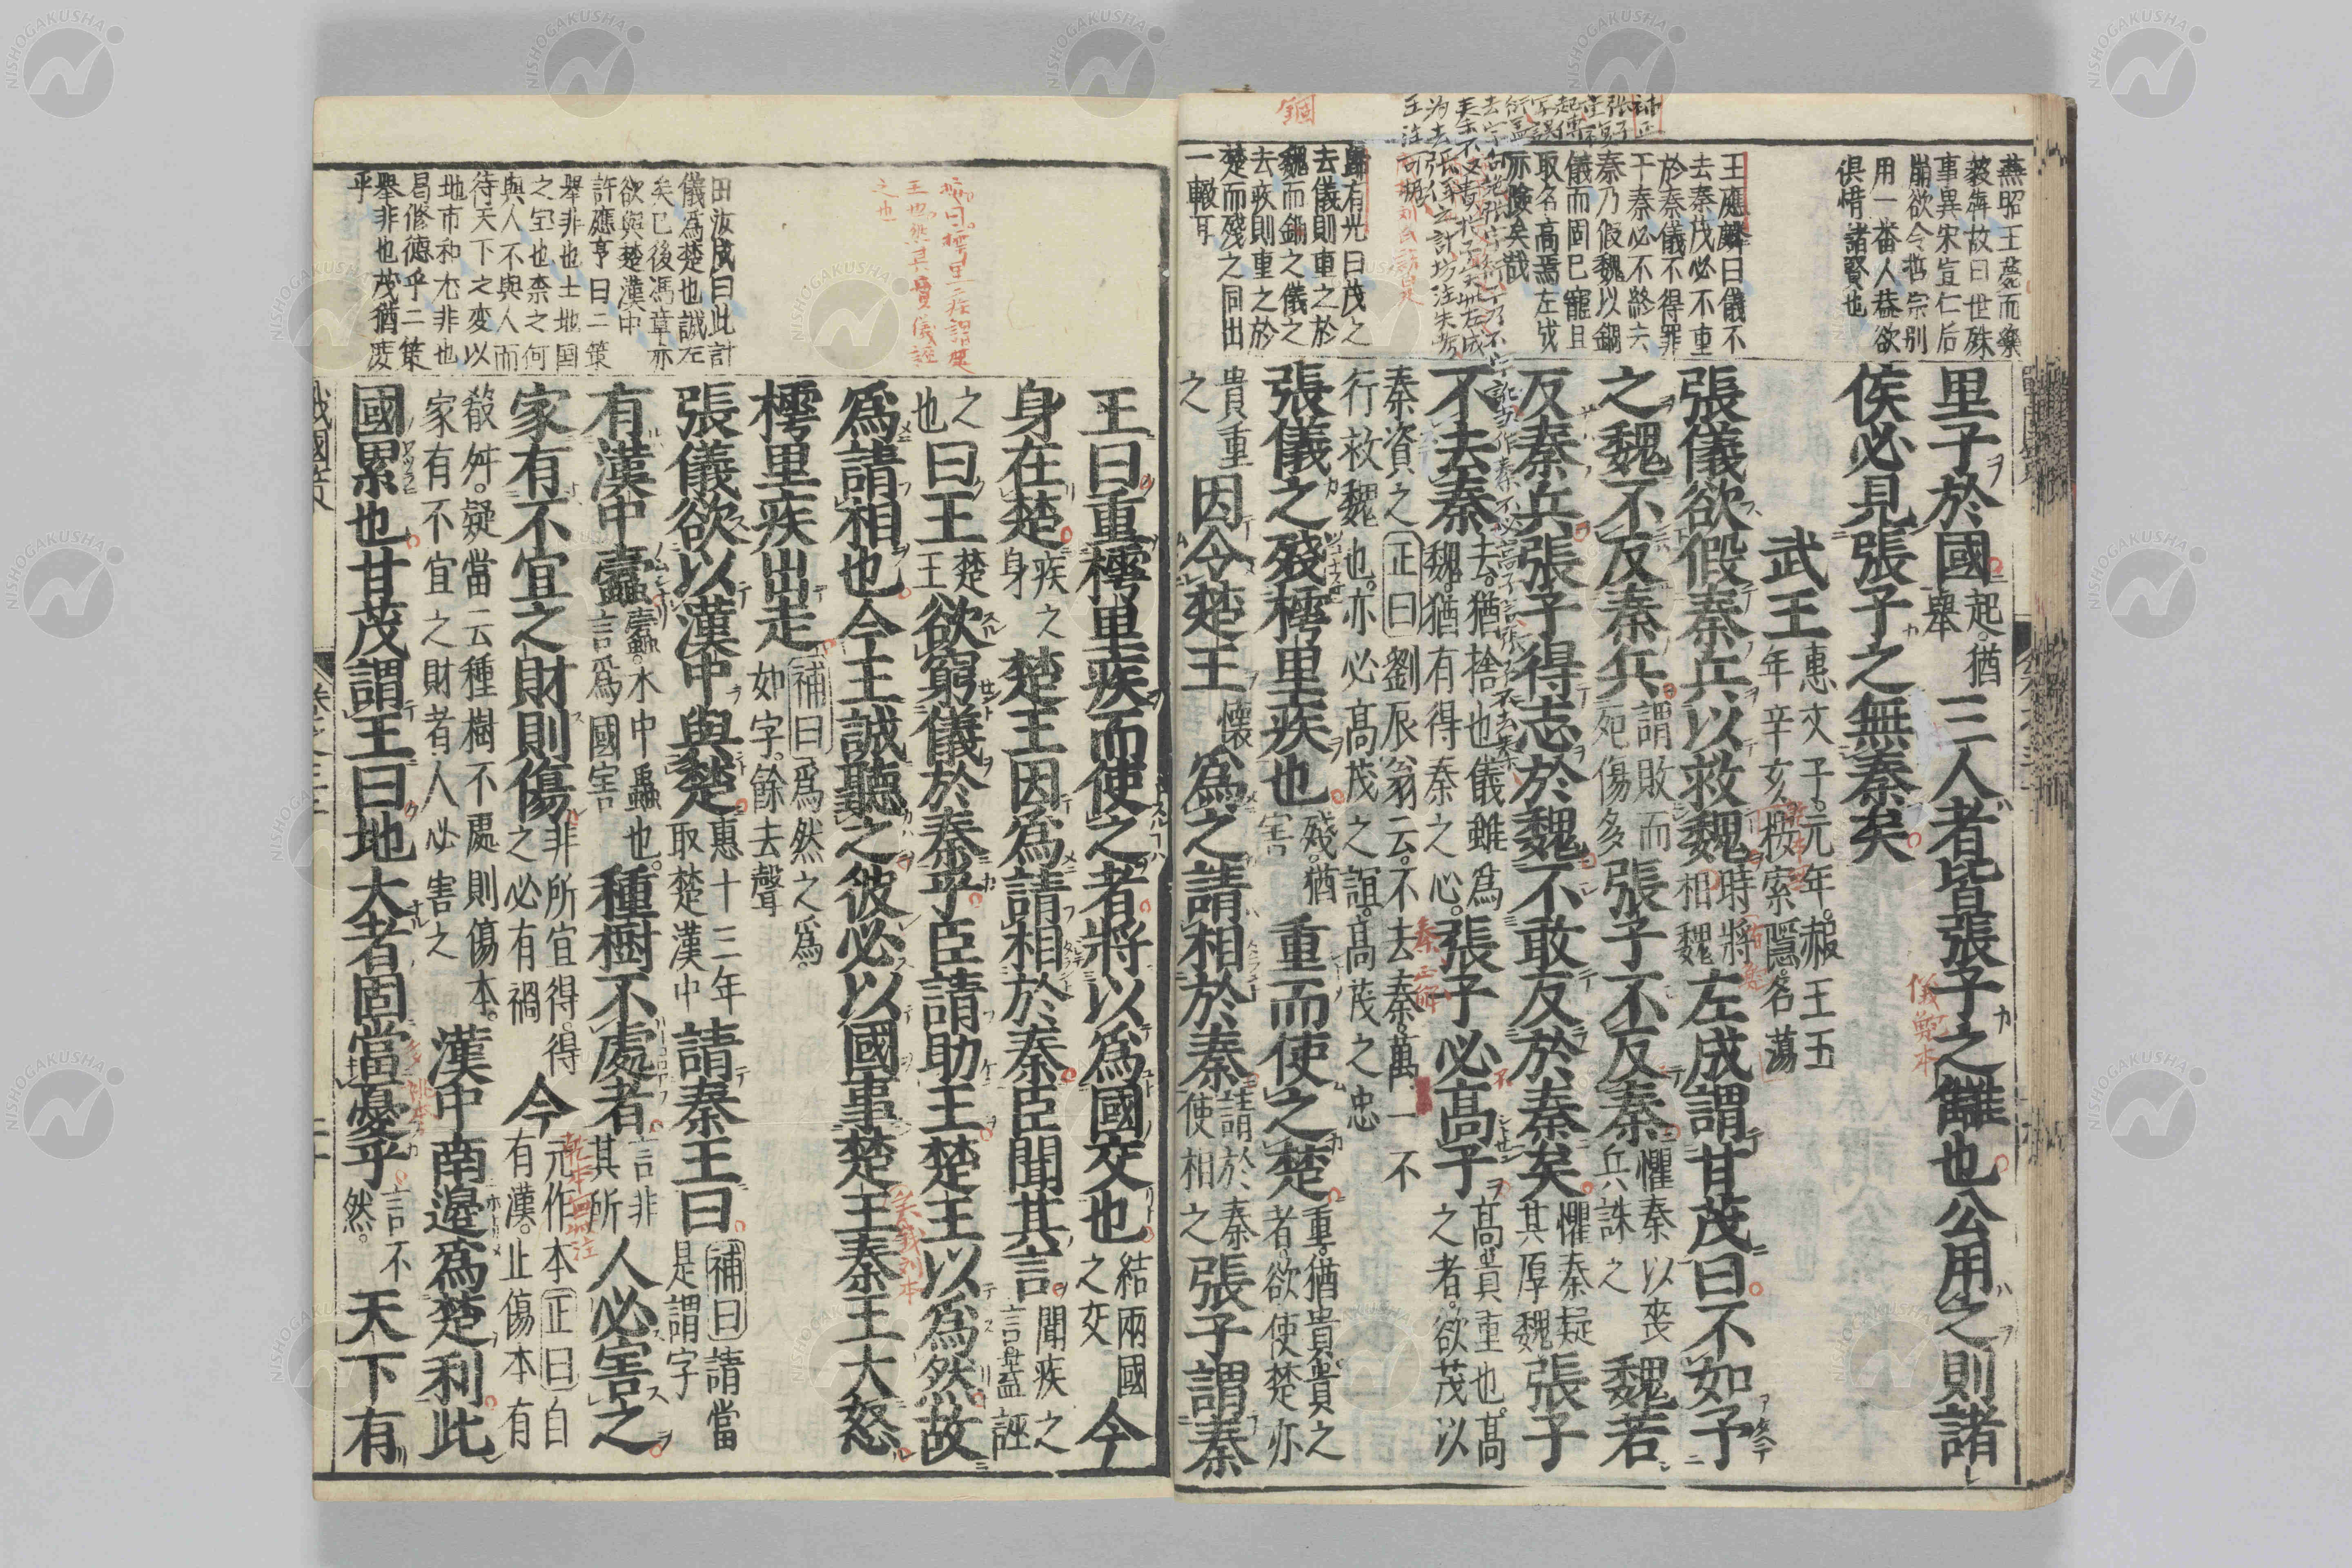 燕昭王薨而樂
毅奔故曰世殊
事異宋宣仁后
崩欲令哲宗別
用一番人巷欲
俱惜諸賢也
王應麟曰儀不
去秦茂必不重
於秦儀不得罪
于秦必不終去
秦乃假魏以錮
儀而固己寵且
取名高焉左成
亦險矣哉
歸有光曰茂之
去儀則重之於
魏而錮之儀之
去疾則重之於
楚而殘之同出
一轍耳
錮
里子於國起猶舉三人者皆張子之讎也公用之則諸
侯必見張子之無秦矣
儀鄭本
武王惠文子元年赧王五年辛亥按索隱名蕩
張儀欲假秦兵以救魏時將相魏左成謂甘茂曰不如予
之魏不反秦兵謂敗而死傷多張子不反秦懼秦以喪兵誅之魏若
反秦兵張子得志於魏不敢反於秦矣懼秦疑其厚魏張子
不去秦去猶捨也儀雖為魏猶有得秦之心張子必高子高貴重也高之者欲茂以
秦資之行救魏也亦必高茂之誼高茂之忠正曰劉辰翁云不去秦萬一不
張儀之殘樗里疾也殘猶害重而使之楚重猶貴貴之者欲使楚亦
貴重之因令楚王懷為之請相於秦請於秦使相之張子謂秦
王曰重樗里疾而使之者將以為國交也結兩國之交今
身在楚疾之身楚王因為請相於秦臣聞其言聞疾之言蓋誣
之也曰王楚王欲窮儀於秦乎臣請助王楚王以為然故
為請相也今王誠聽之彼必以國事楚王秦王大怒
樗里疾出走補曰為然之為如字餘去聲
張儀欲以漢中與楚惠十三年取楚漢中請秦王曰補曰請當是謂字
有漢中蠹蠹蟲水中蟲也言為國害種樹不處者言非其所人必害之
家有不宜之財則傷非所宜得得之必有禍今元作本有漢止傷本正曰自有
殽舛疑當云種樹不處則傷本家有不宜之財者人必害之漢中南邊為楚利此
國累也甘茂謂王曰地大者固當憂乎言不然天下有
田汝成曰此計
儀為楚也誠左
矣已後馮章亦
欲與楚漢中
許應亨曰二策
舉非也土地国
之宝也柰之何
與人不與人而
待天下之变以
地市和尤非也
昌修德乎二策
舉非也茂猶廋
乎